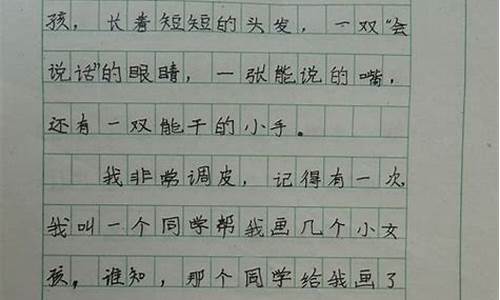 孩，长着短短的头发，一双“会
说话”的眼睛，一张能说的嘴，
还有一双能干的小手。
我非常调皮，记得有一次，
我叫一个同学帮我画几个小女
孩。谁知，那个同学给我画了